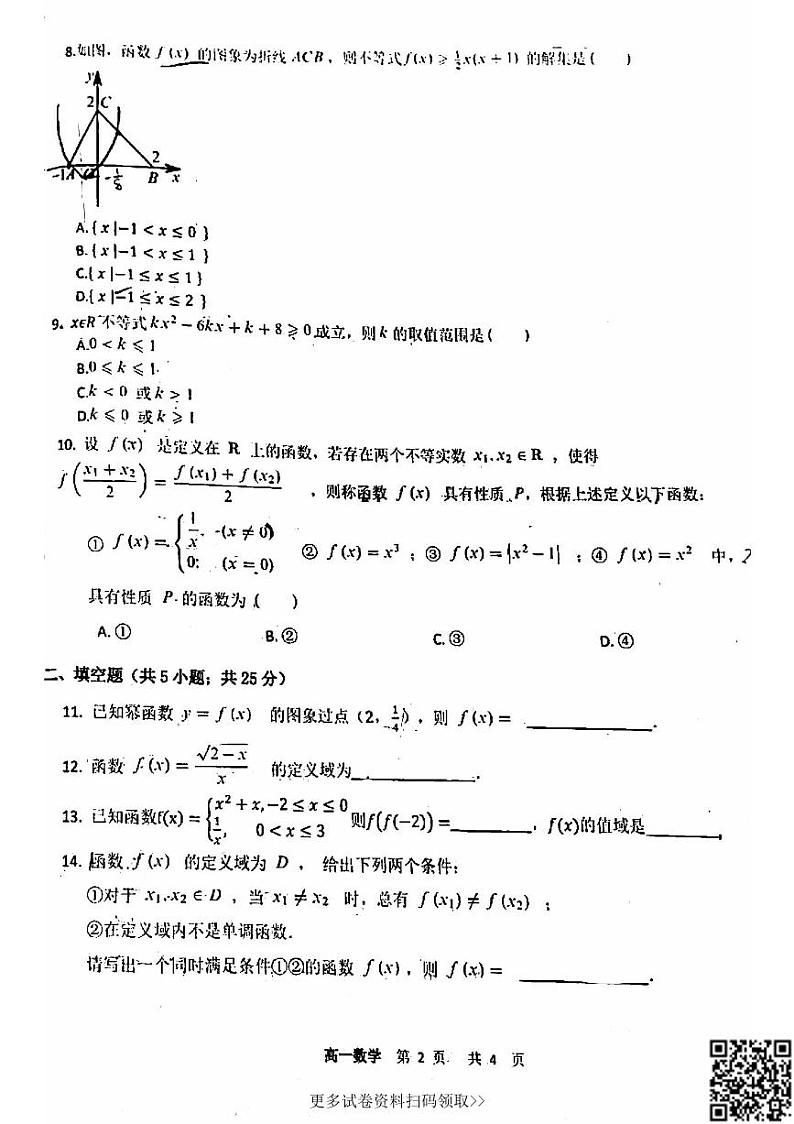 8.如图，函数 f (x) 的图象为折线 ACB，则不等式f(x) ⩾ ½x(x + 1) 的解集是 (    )
y
2 C
2
-1A -1/8 B x
A.{ x |−1 < x ≤ 0 }
B.{ x |−1 < x ≤ 1 }
C.{ x |−1 ≤ x ≤ 1 }
D.{ x |−1 ≤ x ≤ 2 }
9. x∈R 不等式 kx² − 6kx + k + 8 ⩾ 0 成立，则 k 的取值范围是 (    )
A.0 < k ⩽ 1
B.0 ⩽ k ⩽ 1
C.k < 0 或 k > 1
D.k ⩽ 0 或 k ⩾ 1
10. 设 f (x) 是定义在 R 上的函数，若存在两个不等实数 x₁, x₂ ∈ R ，使得
f((x₁ + x₂)/2) = (f (x₁) + f (x₂))/2 ，则称函数 f (x) 具有性质 P，根据上述定义以下函数：
① f (x) = { 1/x, (x ≠ 0) 0; (x = 0) ② f (x) = x³ ；③ f (x) = |x² − 1| ；④ f (x) = x² 中，2
具有性质 P 的函数为 (    )
A. ① B. ② C. ③ D. ④
二、填空题（共 5 小题；共 25 分）
11. 已知幂函数 y = f (x) 的图象过点（2, 1/4），则 f (x) = ________.
12. 函数 f (x) = √(2 − x)/x 的定义域为________.
13. 已知函数f(x) = { x² + x, −2 ≤ x ≤ 0 1/x, 0 < x ≤ 3 则f(f(−2)) =________，f(x)的值域是________.
14. 函数 f (x) 的定义域为 D ， 给出下列两个条件：
①对于 x₁, x₂ ∈ D ，当 x₁ ≠ x₂ 时，总有 f (x₁) ≠ f (x₂) ；
②在定义域内不是单调函数.
请写出一个同时满足条件①②的函数 f (x) ，则 f (x) = ________.
高一数学 第 2 页 共 4 页
更多试卷资料扫码领取>>